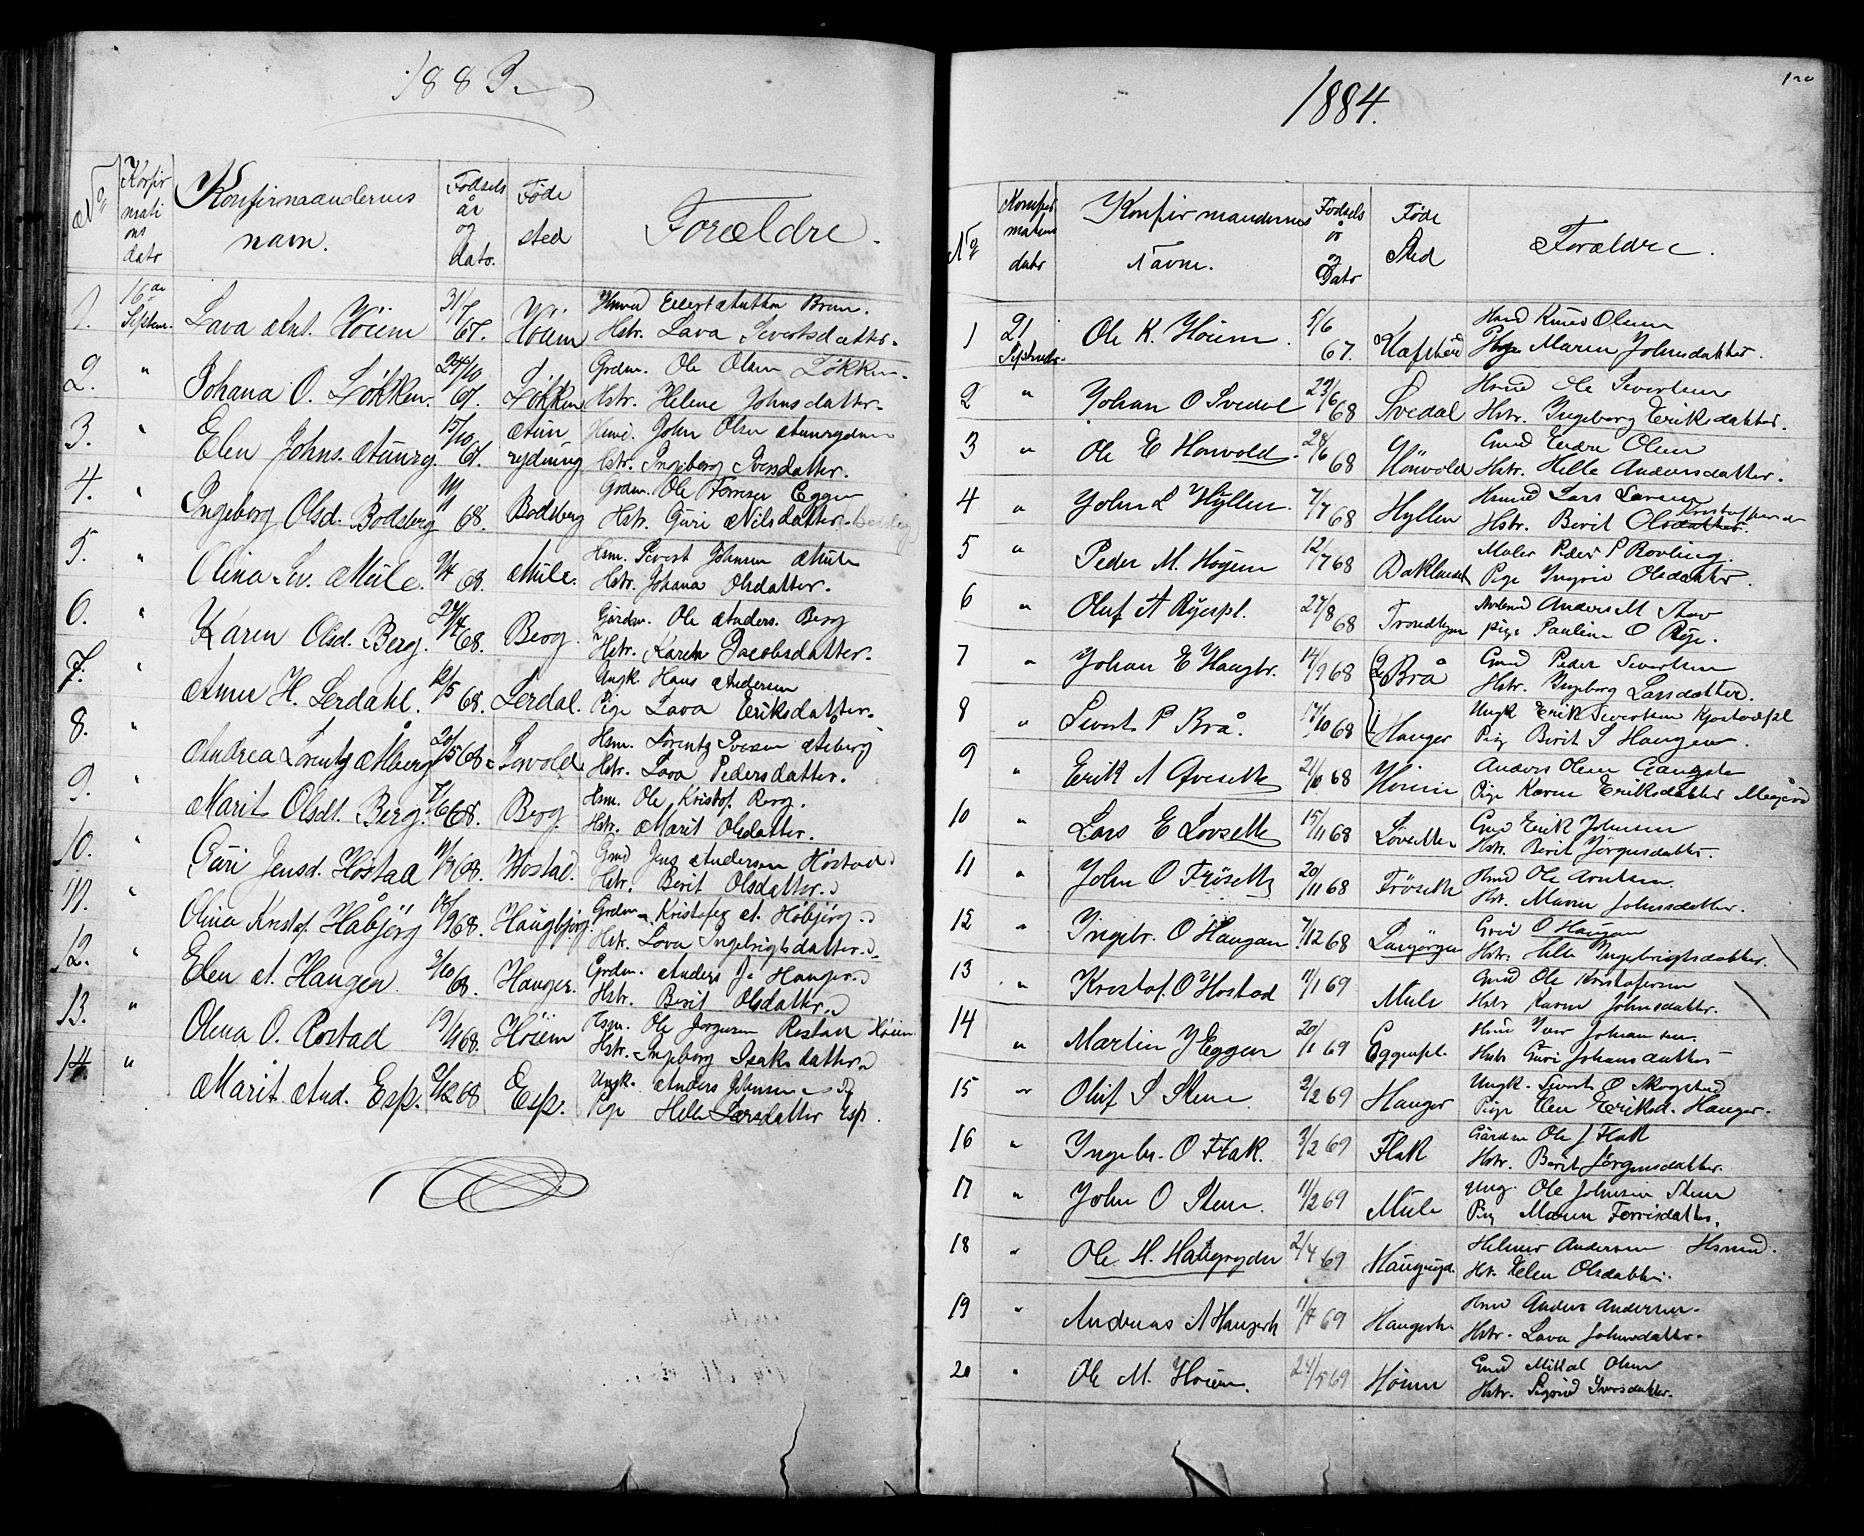 1883.
No Konfirmations dato Konfirmandernes navn. Fødsels år og dato. Føde sted Forældre.
1. 16de Septem. Lava Ant. Höiem 31/7 67. Höiem Hsmd Ellert Anthon Bruun.
Hstr. Lava Sivertsdatter.
2. " Johana O. Løkken. 24/10 67. Løkken Grdm. Ole Olsen Løkken.
Hstr. Helene Johnsdatter.
3. " Elen Johns. Aunryg. 15/10 67. Aunrydning John Olsen Aunrydnin
Hstr. Ingeborg Iversdatter.
4. " Ingeborg Olsd. Bodsberg 68. Bodsberg Grdm. Ole Torresen Eggen
Hstr. Guri Nilsdatter
5. " Olina Siv. Mule. 9/4 68. Mule. Hsm. Sivert Johnsen Mule
Hstr. Johana Olsdatter.
6. " Karen Olsd. Berg. 27/4 68. Berg. Gårdm. Ole Anders. Berg
Hstr. Karen Jacobsdatter.
7. " Anne H. Lerdahl. 12/5 68. Lerdal. Ungk. Hans Andersen
Pige Lava Eriksdatter.
8. " Andrea Lorentz Aaberg 20/5 68. Hsm. Lorentz Iversen Aaberg
Hstr. Lava Pedersdatter.
9. " Marit Olsdt. Berg. 7/6 68. Berg. Hsm. Ole Kristof. Berg.
Hstr. Marit Olsdatter.
10. " Guri Jensd. Höstad 11/9 68. Höstad. Grmd Jens Andersen Höstad
Hstr. Berit Olsdatter.
11. " Olina Kristof. Håbjörg 68. Haugbjørg. Grdm. Kristofer A. Höbjörg
Hstr. Lova Ingebrigtsdatter.
12. " Elen A. Haugen. 2/10 68. Haugen. Grdm. Anders J. Haugen
Hstr. Berit Olsdatter.
13. " Olena O. Rostad 19/11 68. Höiem Hsm. Ole Jorgensen Rostad Höiem
Hstr. Ingeborg Isaksdatter.
14. " Marit And. Esp. 2/12 68 Esp. Ungk. Anders Johnsen
Pige Helle Larsdatter Esp.
1884.
No Konfirmations dato Konfirmandernes Navne. Fødsels år og Dato Føde Sted Forældre.
1 21 Septembr. Ole K. Höiem. 5/6 67. Kafstad Hsmd Knud Olsen
Pige Maren Johnsdatter.
2 " Johan O Svedal 29/6 68 Svedal Hsmd Ole Sivertsen
Hstr. Ingeborg Eriksdatter.
3 " Ole E Hönvold. 28/6 68 Hönvold Gmd Endre Olsen
Hstr. Helle Andersdatter.
4 " John L Hyllen. 7/7 68 Hyllen Hsmd Lars Larsen
Hstr. Berit Olsdatter. Kristoffersd
5 " Peder M. Höyem 12/7 68 Daklandet Maler Peder P Rovling.
Pige Ingrid Olsdatter.
6 " Oluf A Ryespl. 27/8 68 Trondhjem Anders M Stav
pige Pauline O Rye.
7 " Johan E Haugbr. 14/9 68 Brå Gmd Peder Sivertsen
Hstr. Ingeborg Larsdatter.
8 " Sivert P Brå. 17/10 68 Haugen Ungk Erik Sivertsen
Pige Berit S Haugen.
9 " Erik A Qveseth 21/10 68 Höiem Anders Olsen
Pige Karen Eriksdatter
10 " Lars E Lovseth 15/11 68 Löveseth Gmd Erik Johnsen
Hstr. Berit Jörgensdatter.
11 " John O Fröseth 20/11 68 Fröseth Hsmd Ole Arntsen.
Hstr. Maren Johnsdatter.
12 " Ingebr. O Haugan 7/12 68 Langörgen Grd O Haugan
Hstr. Ingebrigtsdatter
13 " Kristof. O Höstad 1/1 69 Mule Gmd Ole Kristofersen
Hstr Karen Johnsdatter.
14 " Martin J Eggen 20/1 69 Eggenspl. Hsmd Iver Johansen.
Hstr Guri Johansdatter
15 " Oluf S Stene. 2/2 69 Haugen Ungk. Sivert O Skogstad
Pige Elen Eriksd. Haugen.
16 " Ingebr. O Flak. 3/2 69 Flak Gårdm Ole J Flak
Hstr. Berit Jörgensdatter.
17 " John O Stene. 11/2 69 Mule Ung. Ole Johnsen Stene
Pig Maren Torrisdatter.
18 " Ole H. Haugryden 2/4 69 Haugryd. Helmer Andersen Hsmd.
Hst. Elen Olsdatter.
19 " Andreas A Haugerh 11/4 69 Haugerh. Hsmd Anders Andersen.
Hstr. Lava Johnsdatter.
20 " Ole M. Höiem. 24/5 69 Höiem Gmd Mikkal Olsen
Hstr. Sigrid Iversdatter.